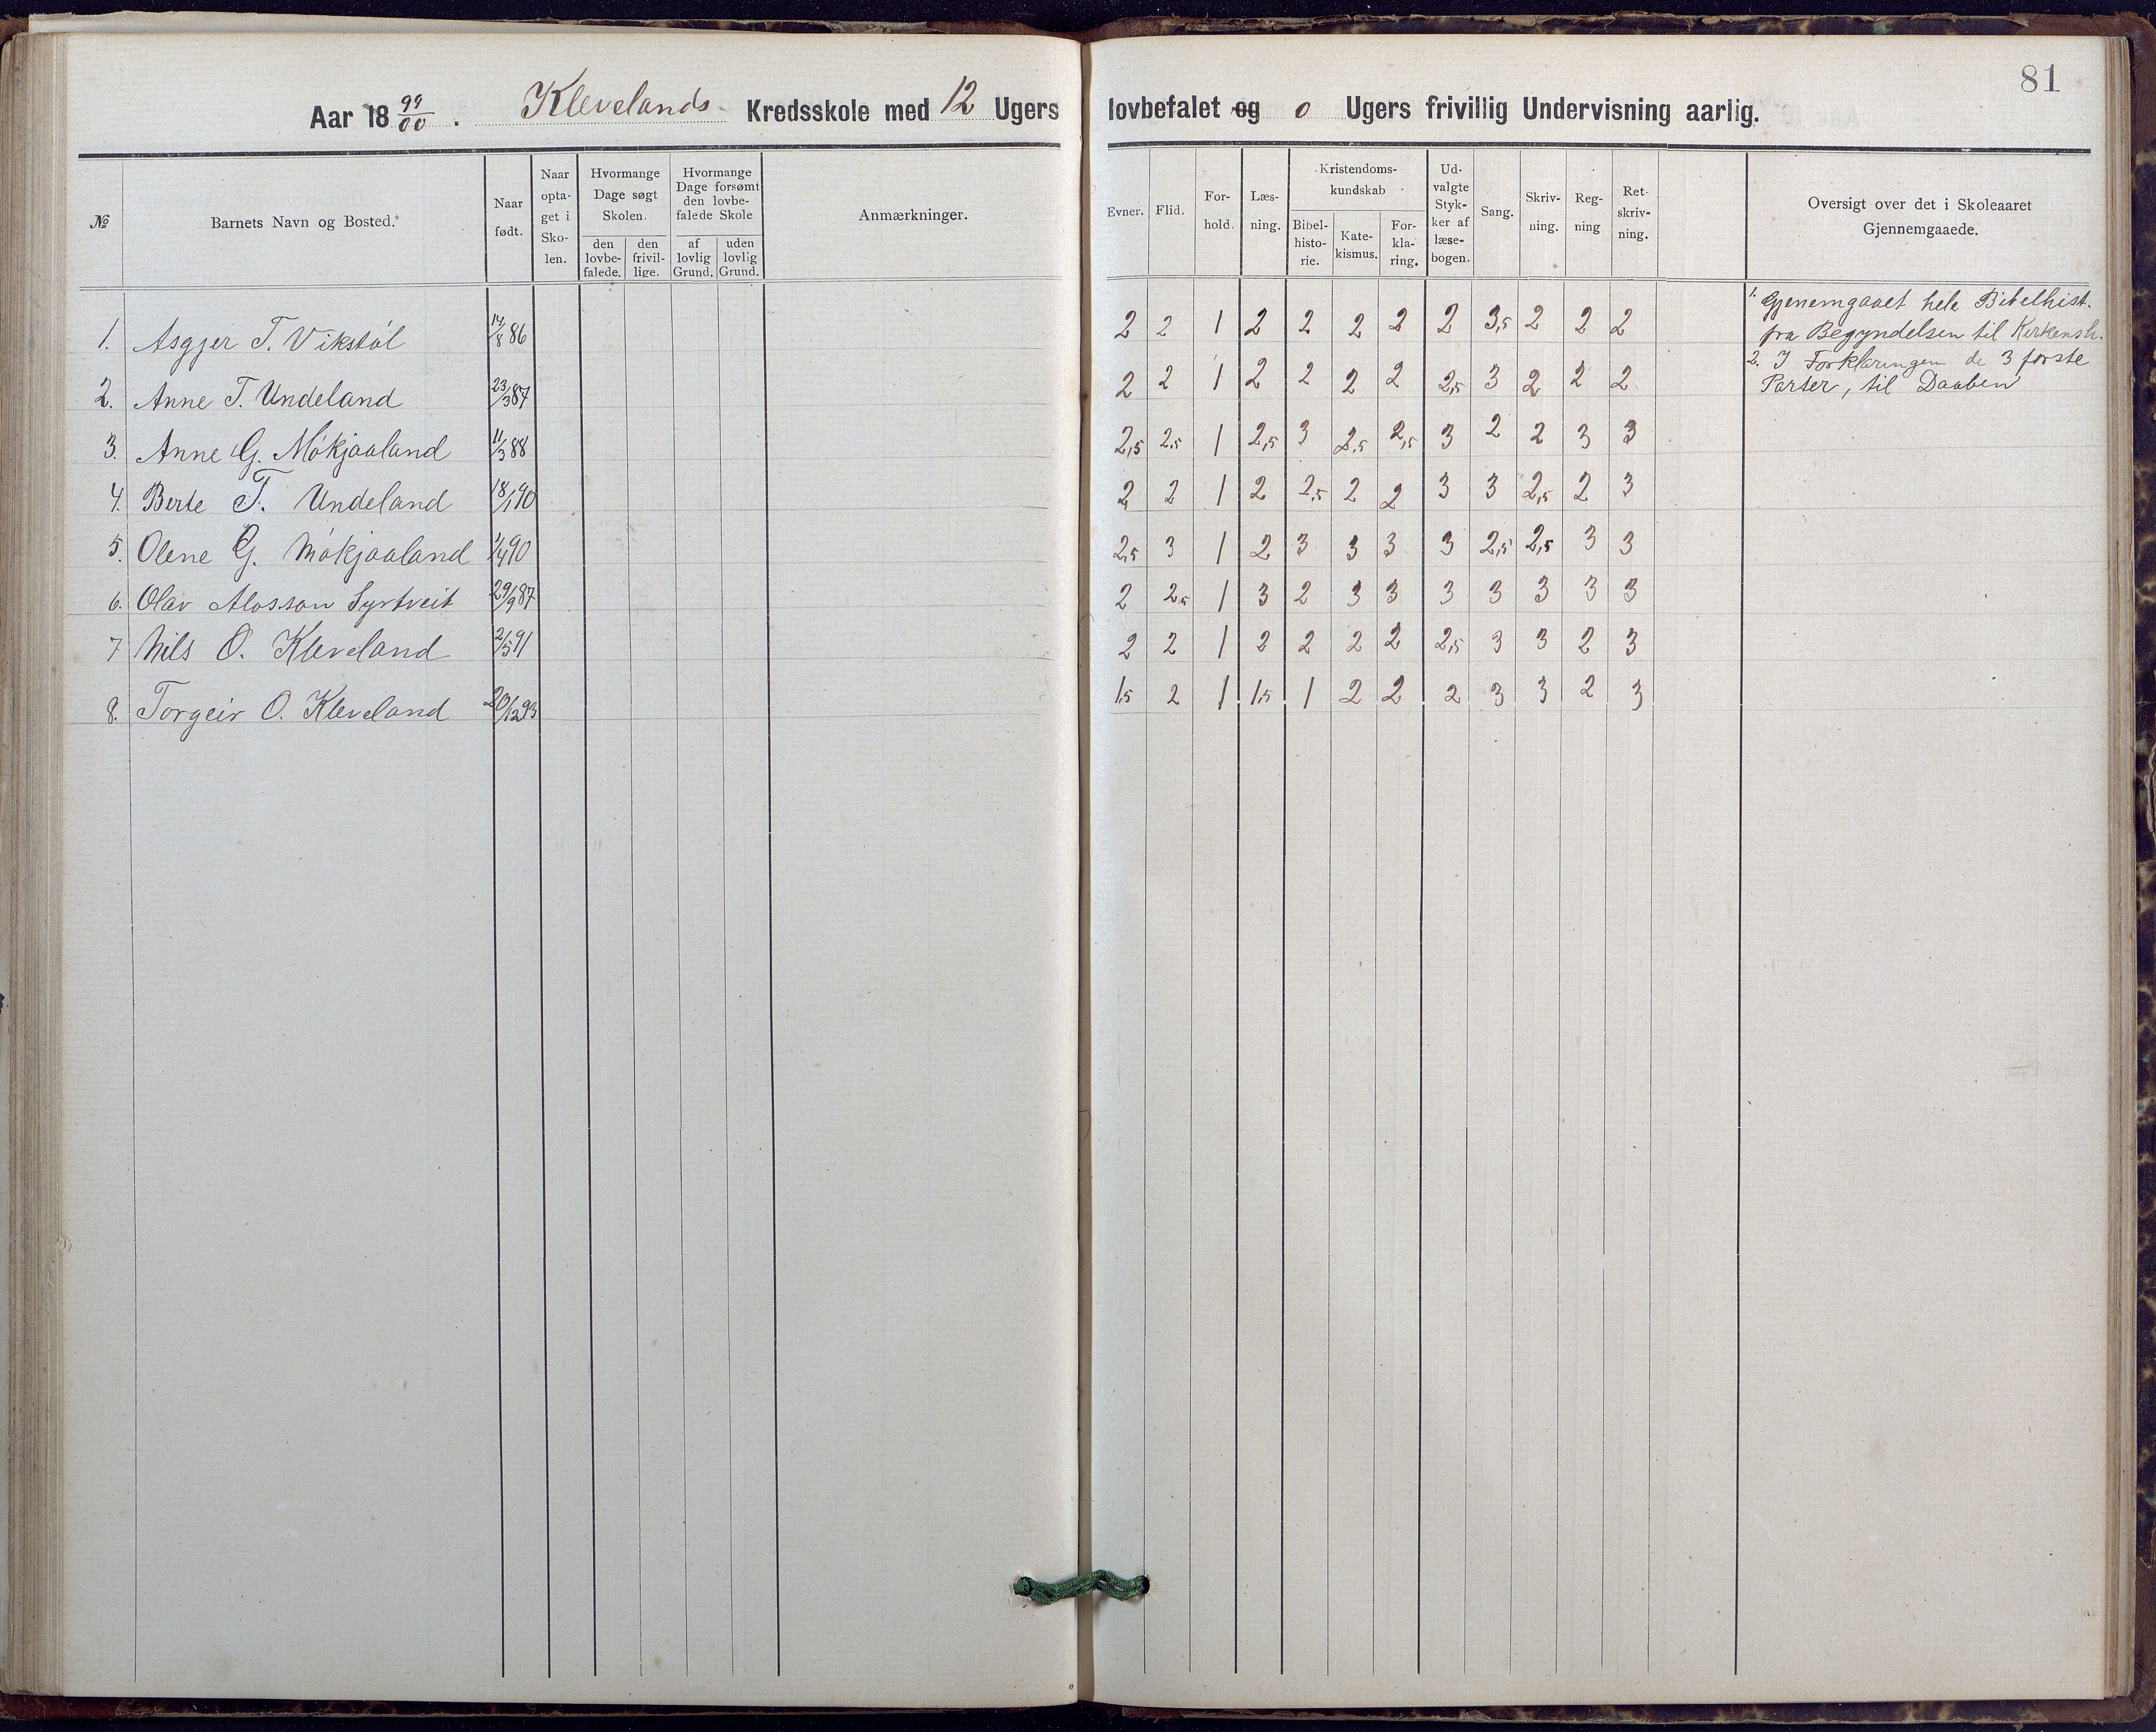 81
Aar 18 99/00 . Klevelands Kredsskole med 12 Ugers lovbefalet og 0 Ugers frivillig Undervisning aarlig.
№ Barnets Navn og Bosted. Naar født. Naar opta- get i Sko- len. Hvormange Dage søgt Skolen. den lovbe- falede. den frivil- lige. Hvormange Dage forsømt den lovbe- falede Skole af lovlig Grund. uden lovlig Grund. Anmærkninger. Evner. Flid. For- hold. Læs- ning. Kristendoms- kundskab Bibel- histo- rie. Kate- kismus. For- kla- ring. Ud- valgte Styk- ker af læse- bogen. Sang. Skriv- ning. Reg- ning Ret- skriv- ning. Oversigt over det i Skoleaaret Gjennemgaaede.
1. Asgjer T. Vikstøl 14/8 86 2 2 1 2 2 2 2 2 3,5 2 2 2
2. Anne T. Undeland 23/3 87 2 2 1 2 2 2 2 2,5 3 2 2 2
3. Anne G. Mökjaaland 11/3 88 2,5 2,5 1 2,5 3 2,5 2,5 3 2 2 3 3
4. Berte T. Undeland 18/1 90 2 2 1 2 2,5 2 2 3 3 2,5 2 3
5. Olene G. Mökjaaland 1/4 90 2,5 3 1 2 3 3 3 3 2,5 2,5 3 3
6. Olav Alosson Syrtveit 29/9 87 2 2,5 1 3 2 3 3 3 3 3 3 3
7 Nils O. Kleveland 2/5 91 2 2 1 2 2 2 2 2,5 3 3 2 3
8. Torgeir O. Kleveland 20/12 93 1,5 2 1 1,5 1 2 2 2 3 3 2 3
1. Gjenemgaaet hele Bibelhist.
fra Begyndelsen til Kirkensh.
2. I Forklaringen de 3 første
Parter, til Daaben